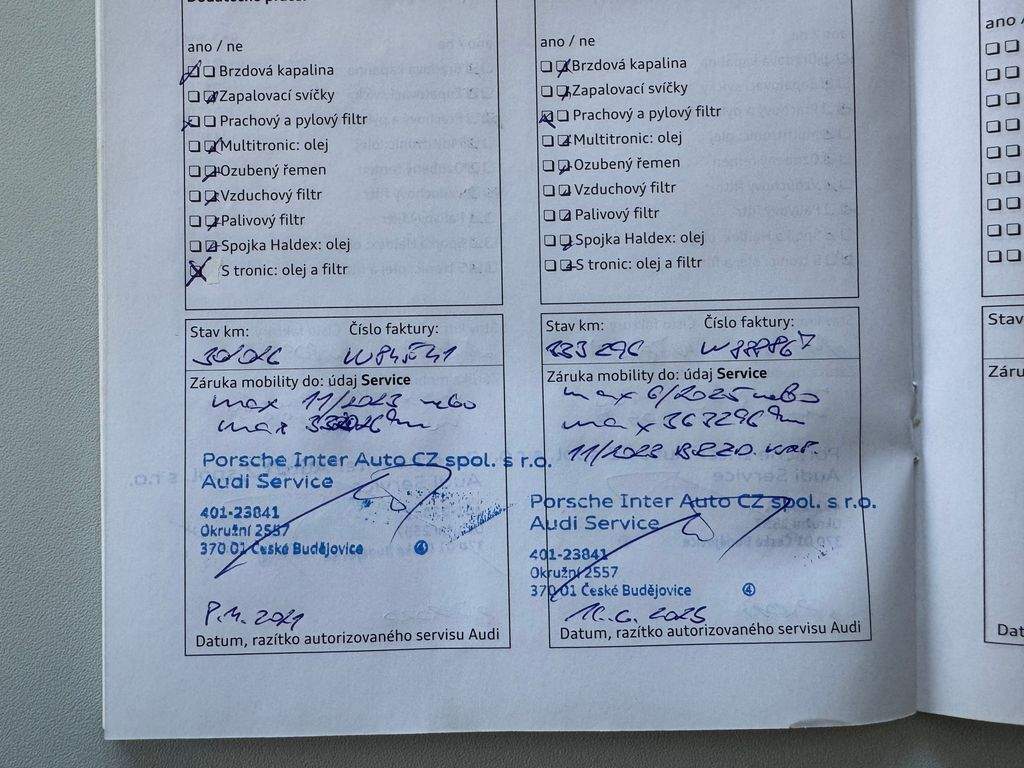 ano / ne
Brzdová kapalina
Zapalovací svíčky
Prachový a pylový filtr
Multitronic: olej
Ozubený řemen
Vzduchový filtr
Palivový filtr
Spojka Haldex: olej
S tronic: olej a filtr
Stav km: Číslo faktury:
W84541
Záruka mobility do: údaj Service
max 11/2023 nebo
max km
Porsche Inter Auto CZ spol. s r.o.
Audi Service
401-23841
Okružní 2557
370 01 České Budějovice 4
2021
Datum, razítko autorizovaného servisu Audi
ano / ne
Brzdová kapalina
Zapalovací svíčky
Prachový a pylový filtr
Multitronic: olej
Ozubený řemen
Vzduchový filtr
Palivový filtr
Spojka Haldex: olej
S tronic: olej a filtr
Stav km: Číslo faktury:
333 296 W88867
Záruka mobility do: údaj Service
max 6/2025 nebo
max 363296 km
11/2023 BRZD. KAP.
Porsche Inter Auto CZ spol. s r.o.
Audi Service
401-23841
Okružní 2557
370 01 České Budějovice 4
Datum, razítko autorizovaného servisu Audi
ano /
Stav
Záru
Dat